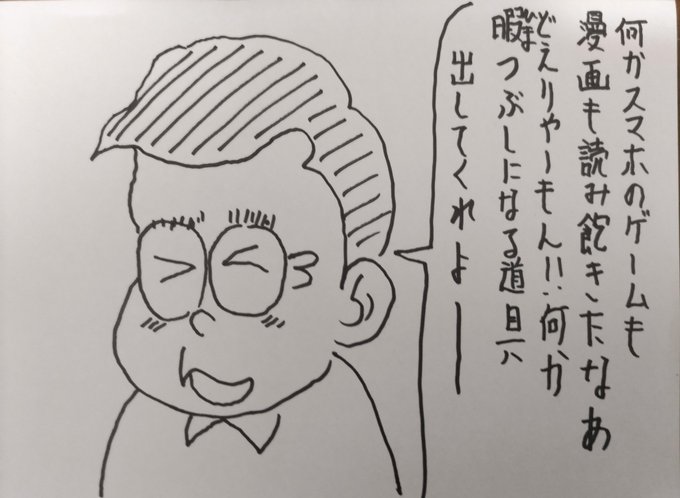 何かスマホのゲームも
漫画も読み飽きたなあ
どえりゃーもん!!何か
ひま
暇つぶしになる道具
出してくれよー